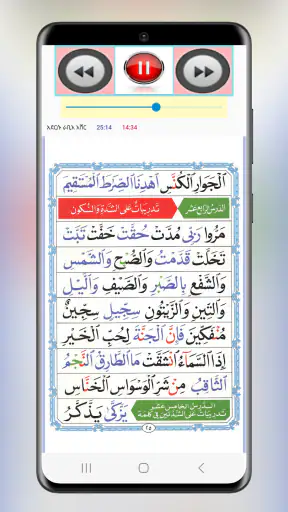 አደርቡኑ ራቢእ አሸር 25:14 14:34
اَلْجَوَارِ الْكُنَّسِ اِهْدِنَا الصِّرَاطَ الْمُسْتَقِيْمَ
الدرس الرابع عشر تدريبات على الشدة والسكون
مَرُّوْا رَبِّىْ مُدَّتْ حُقَّتْ خَفَّتْ تَبَّتْ
تَخَلَّتْ قَدَّمَتْ وَالصُّبْحِ وَالشَّمْسِ
وَالشَّفْعِ بِالصَّبْرِ وَالصَّيْفِ وَالَّيْلِ
وَالتِّيْنِ وَالزَّيْتُوْنِ سِجِّيْلٍ سِجِّيْنٌ
مُنْفَكِّيْنَ فَاِنَّ الْجَنَّةَ لِحُبِّ الْخَيْرِ
اِذَا السَّمَآءُ انْشَقَّتْ مَا الطَّارِقُ النَّجْمُ
الثَّاقِبُ مِنْ شَرِّ الْوَسْوَاسِ الْخَنَّاسِ
الدرس الخامس عشر تدريبات على الشدتين في كلمة يَزَّكّٰى يَذَّكَّرُ
٢٥